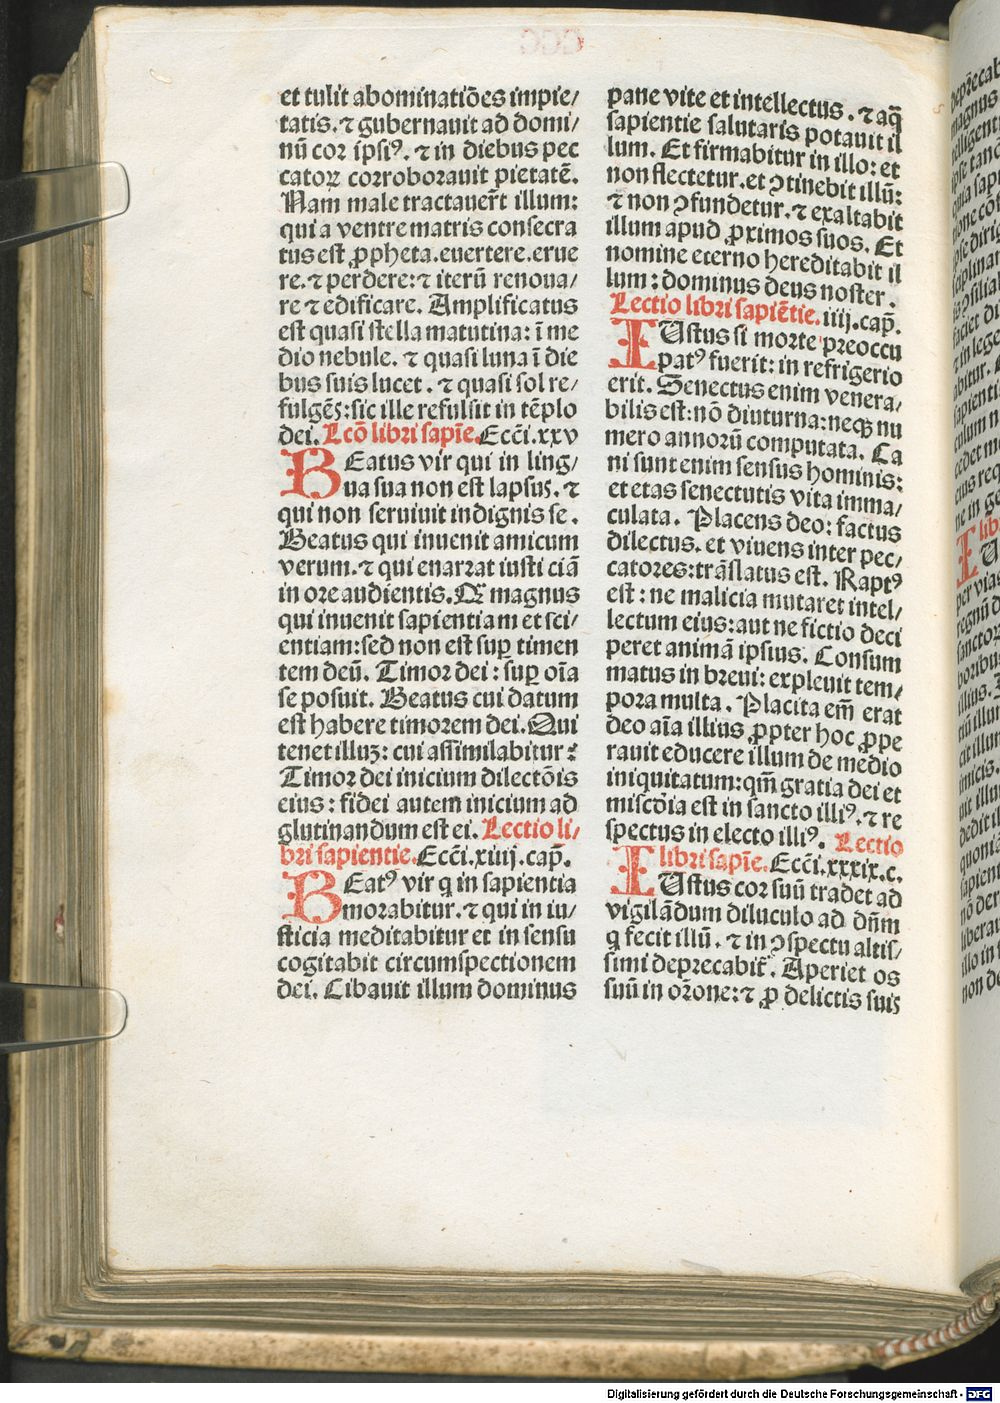 et tulit abominatiões impie/
tatis. ⁊ gubernauit ad domi/
nũ cor ipsiꝰ. ⁊ in diebus pec
catoꝝ corroborauit pietatẽ.
Nam male tractauer̃t illum:
qui a ventre matris consecra
tus est ꝓpheta. euertere. erue
re. ⁊ perdere: ⁊ iterũ renoua/
re ⁊ edificare. Amplificatus
est quasi stella matutina: ĩ me
dio nebule. ⁊ quasi luna ĩ die
bus suis lucet. ⁊ quasi sol re/
fulgẽs: sic ille refulsit in tẽplo
dei. Lcõ libri sapĩe. Ecc̃i. xxv
BEatus vir qui in ling/
ua sua non est lapsus. ⁊
qui non seruiuit indignis se.
Beatus qui inuenit amicum
verum. ⁊ qui enarrat iusticiã
in ore audientis. Q̃ magnus
qui inuenit sapientiam et sci/
entiam: sed non est suꝑ timen
tem deũ. Timor dei: suꝑ oĩa
se posuit. Beatus cui datum
est habere timorem dei. Qui
tenet illuꝫ: cui assimilabitur:
Timor dei inicium dilectõis
eius: fidei autem inicium ad
glutinandum est ei. Lectio li/
bri sapientie. Ecc̃i. xiiij. cap̃.
BEatꝰ vir q in sapientia
morabitur. ⁊ qui in iu/
sticia meditabitur et in sensu
cogitabit circumspectionem
dei. Cibauit illum dominus
pane vite et intellectus. ⁊ aq̃
sapientie salutaris potauit il
lum. Et firmabitur in illo: et
non flectetur. et ꝯtinebit illũ:
⁊ non ꝯfundetur. ⁊ exaltabit
illum apud ꝓximos suos. Et
nomine eterno hereditabit il
lum: dominus deus noster.
Lectio libri sapiẽtie. iiij. cap̃.
IUstus si morte preoccu
patꝰ fuerit: in refrigerio
erit. Senectus enim venera/
bilis est: nõ diuturna: neqꝫ nu
mero annorũ computata. Ca
ni sunt enim sensus hominis:
et etas senectutis vita imma/
culata. Placens deo: factus
dilectus. et viuens inter pec/
catores: trãslatus est. Raptꝰ
est: ne malicia mutaret intel/
lectum eius: aut ne fictio deci
peret animã ipsius. Consum
matus in breui: expleuit tem/
pora multa. Placita em̃ erat
deo aĩa illius ꝓpter hoc ꝓpe
rauit educere illum de medio
iniquitatum: qm̃ gratia dei et
miscõia est in sancto illiꝰ. ⁊ re
spectus in electo illiꝰ. Lectio
libri sapĩe. Ecc̃i. xxxix. c.
IUstus cor suũ tradet ad
vigilãdum diluculo ad dñm
q fecit illũ. ⁊ in ꝯspectu altis/
simi deprecabit̃. Aperiet os
suũ in or̃one: ⁊ ꝓ delictis suis
Digitalisierung gefördert durch die Deutsche Forschungsgemeinschaft - DFG